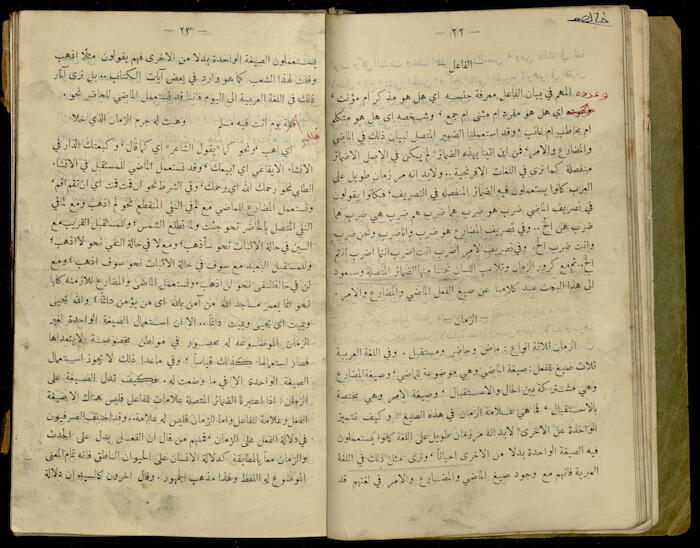 — ٢٢ —
الفاعل
المهم في بيان الفاعل معرفة جنسه اي هل هو مذكر ام مؤنث ،
وعدده
اي هل هو مفرد ام مثنى ام جمع ، وشخصه اي هل هو متكلم
ام مخاطب ام غائب ، وقد استعملنا الضمير المتصل لبيان ذلك في الماضي
والمضارع والامر . فمن اين اتينا بهذه الضمائر ? لم يكن في الاصل الا ضمائر
منفصلة كما نرى في اللغات الافرنجية . . ولا بد انه مر زمان طويل على
العرب كانوا يستعملون فيه الضمائر المنفصله في التصريف . فكانوا يقولون
في تصريف الماضي ضرب هو ضرب هما ضرب هم ضرب هي ضرب هما
ضرب هن الخ . . وفي تصريف المضارع هو ضرب وانا ضرب ونحن ضرب
وانت ضرب الخ . وفي تصريف الامر اضرب انت اضرب انتما اضرب انتم
الخ . . ثم مع كرور الزمان وتلاعب اللسان نحتنا منها الضمائر المتصلة وسنعود
الى هذا البحث عند كلامنا عن صيغ الفعل الماضي والمضارع والامر .
— الزمان —
الزمان ثلاثة انواع : ماض وحاضر ومستقبل . وفي اللغة العربية
ثلاث صيغ للفعل : صيغة الماضي وهي موضوعة للماضي ، وصيغة المضارع
وهي مشتركة بين الحال والاستقبال ، وصيغة الامر وهي مختصة
بالاستقبال . فما هي علامة الزمان في هذه الصيغ ? وكيف تتميز
الواحدة عن الاخرى ? لا بد انه مر زمان طويل على اللغة كانوا يستعملون
فيه الصيغة الواحدة بدلا من الاخرى احيانا ، ونرى مثل ذلك في اللغة
العبرية فانهم مع وجود صيغ الماضي والمضارع والامر في لغتهم قد
— ٢٣ —
يستعملون الصيغة الواحدة بدلا من الاخرى فهم يقولون مثلا اذهب
وقلت لهذا الشعب كما هو وارد في بعض آيات الكتاب . . بل نرى آثار
ذلك في اللغة العربية الى اليوم فاننا قد نستعمل الماضي للحاضر نحو .
يوم انت فيه وهبت له جرم الزمان الذي خلا
اي اهب ، ونحو كما « يقول الشاعر » اي كما قال ، وكبعتك الدار في
الانشاء الايقاعي اي ابيعك ، وقد نستعمل الماضي للمستقبل في الانشاء
الطلبي نحو رحمك الله اي يرحمك ، وفي الشرط نحو ان قمت قمت اي ان تقم اقم ،
ونستعمل المضارع للماضي مع لم في النفي المنقطع نحو لم اذهب ومع لما في
النفي المتصل بالحاضر نحو جئت ولما تطلع الشمس ، وللمستقبل القريب مع
السين في حالة الاثبات نحو سأذهب ، ومع لا في حالة النفي نحو لا اذهب ،
وللمستقبل البعيد مع سوف في حالة الاثبات نحو سوف اذهب ، ومع
لن في حالة النفي نحو لن اذهب . ونستعمل الماضي والمضارع للازمنة كلها
نحو انما يعمر مساجد الله من آمن بالله اي من يؤمن دائما ، والله يحيي
ويميت اي يحيي ويميت دائما . . الا ان استعمال الصيغة الواحدة لغير
الزمان الموضوعه له محصور في مواطن مخصوصة لا يتعداها
فصار استعمالها كذلك قياسا ، وفي ما عدا ذلك لا يجوز استعمال
الصيغة الواحدة الا في ما وضعت له . فكيف تدل الصيغة على
الزمان ? اذا اعتبرنا الضمائر المتصلة علامات للفاعل فليس هناك الا صيغة
الفعل وعلامة للفاعل واما الزمان فليس له علامة . وقد اختلف الصرفيون
في دلالة الفعل على الزمان . فمنهم من قال ان الفعل يدل على الحدث
والزمان معا بالمطابقة كدلالة الانسان على الحيوان الناطق فانه تمام المعنى
الموضوع له اللفظ وهذا مذهب الجمهور . وقال آخرون كالسيد ان دلالة